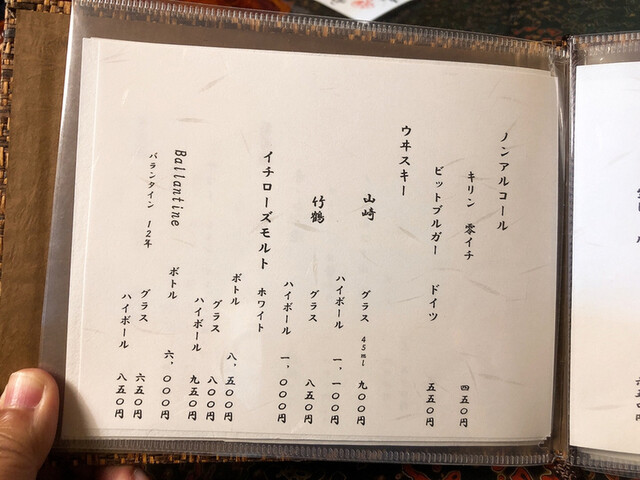 ノンアルコール
キリン 零イチ 四五〇円
ビットブルガー ドイツ 五五〇円
ウヰスキー
山崎 グラス 45ml 九〇〇円
ハイボール 一、一〇〇円
竹鶴 グラス 八五〇円
ハイボール 一、〇〇〇円
イチローズモルト ホワイト
ボトル 八、五〇〇円
グラス 八〇〇円
ハイボール 九五〇円
Ballantine ボトル 六、〇〇〇円
バランタイン 12年 グラス 六五〇円
ハイボール 八五〇円